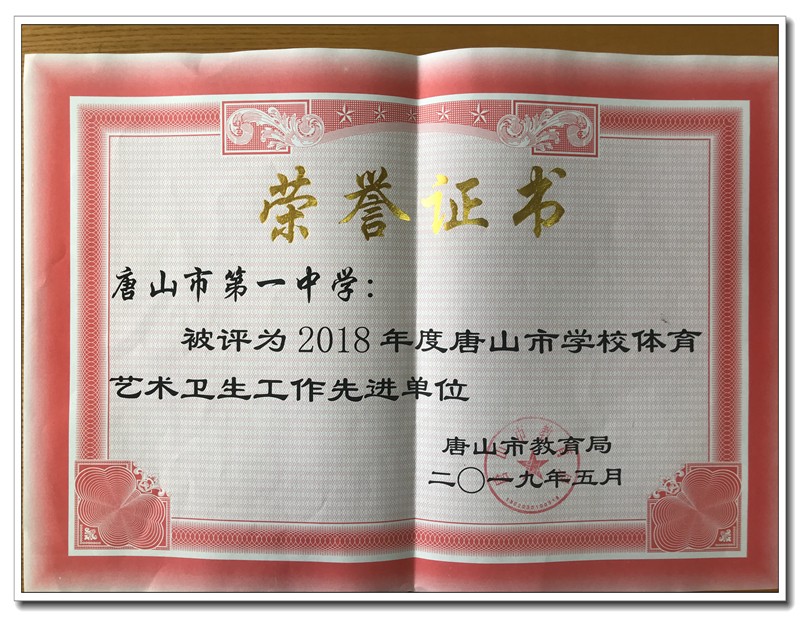 荣誉证书
唐山市第一中学：
被评为2018年度唐山市学校体育
艺术卫生工作先进单位
唐山市教育局
二〇一九年五月